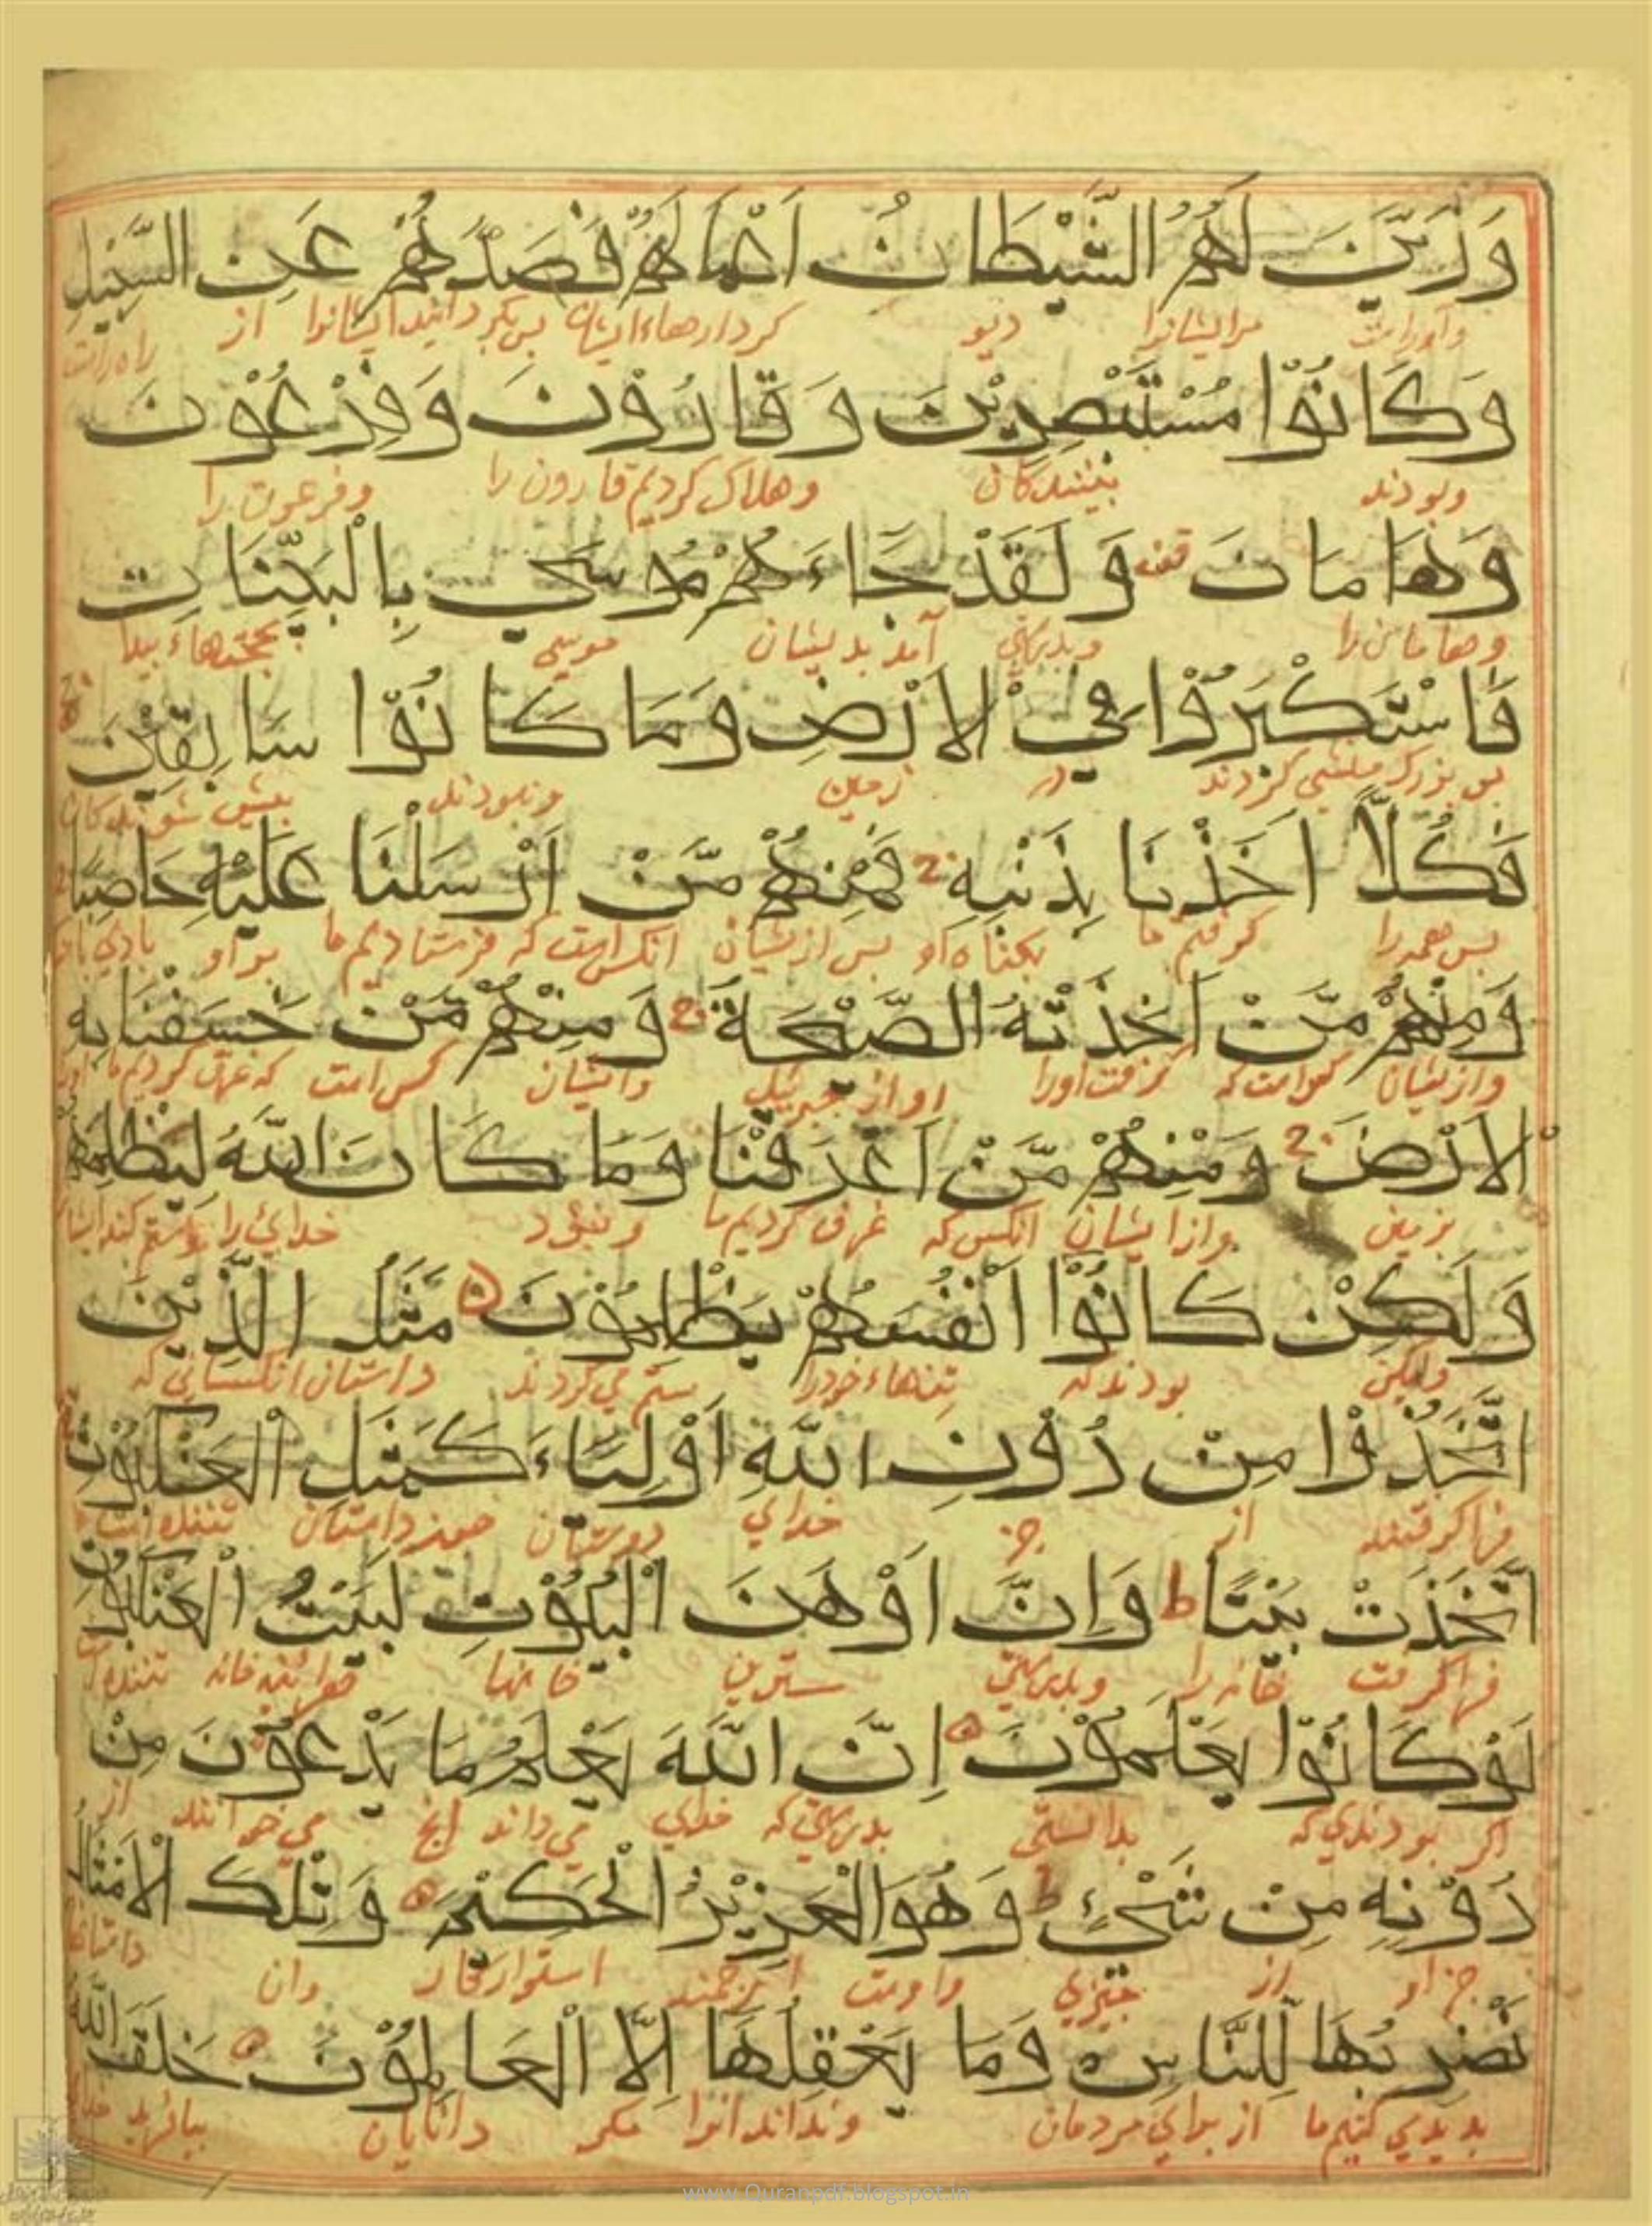 وَزَيَّنَ لَهُمُ الشَّيْطَانُ اَعْمَالَهُمْ فَصَدَّهُمْ عَنِ السَّبِيْلِ
مرایشانرا دیو کردارهاء ایشان پس بکردانید ایشانرا از راه راست
وَكَانُوْا مُسْتَبْصِرِيْنَ وَ قَارُوْنَ وَفِرْعَوْنَ
وبودند بینندکان وهلاک کردیم قارون را وفرعون را
وَهَامَانَ قف وَلَقَدْ جَاءَهُمْ مُوسَى بِالْبَيِّنَاتِ
وهامان را وبدرستی آمد بدیشان موسی بحجتهاء پیدا
فَاسْتَكْبَرُوْا فِي الْاَرْضِ وَمَا كَانُوْا سَابِقِيْنَ
کردند در زمین ونبودند پیشی شوندکان
فَكُلًّا اَخَذْنَا بِذَنْبِهِ فَمِنْهُمْ مَّنْ اَرْسَلْنَا عَلَيْهِ حَاصِبًا
پس همه را کرفتیم ما بکناه او پس ازیشان انکس است که فرستادیم ما بر او بادی با
وَمِنْهُمْ مَّنْ اَخَذَتْهُ الصَّيْحَةُ وَمِنْهُمْ مَّنْ خَسَفْنَا بِهِ
وازیشان کس است که کرفت اورا اواز جبرئیل وازیشان کس است که غرق کردیم ما
الْاَرْضَ وَمِنْهُمْ مَّنْ اَغْرَقْنَا وَمَا كَانَ اللّٰهُ لِيَظْلِمَهُمْ
بزمین وازایشان انکس که غرق کردیم ما ونبود خدای را
وَلٰكِنْ كَانُوْا اَنْفُسَهُمْ يَظْلِمُوْنَ مَثَلُ الَّذِيْنَ
ولیکن بودند که تنهاء خودرا ستم می کردند داستان انکسانی که
اتَّخَذُوْا مِنْ دُوْنِ اللّٰهِ اَوْلِيَاءَ كَمَثَلِ الْعَنْكَبُوْتِ
فراکرفتند از جز خدای دوستان همچو داستان تننده است
اتَّخَذَتْ بَيْتًا ط وَاِنَّ اَوْهَنَ الْبُيُوْتِ لَبَيْتُ الْعَنْكَبُوْتِ
فراکرفت خانه را وبدرستی سسترین خانها هرآئینه خانه تننده
لَوْ كَانُوْا يَعْلَمُوْنَ اِنَّ اللّٰهَ يَعْلَمُ مَا يَدْعُوْنَ مِنْ
اکر بودندی که بدانستی بدرستی که خدای می داند انچ می خوانند از
دُوْنِهِ مِنْ شَيْءٍ ط وَهُوَ الْعَزِيْزُ الْحَكِيْمُ وَتِلْكَ الْاَمْثَالُ
جز او از چیزی واوست ارجمند استوارکار وان داستانها
نَضْرِبُهَا لِلنَّاسِ وَمَا يَعْقِلُهَا اِلَّا الْعَالِمُوْنَ خَلَقَ اللّٰهُ
بدید می کنیم ما از برای مردمان ونداند انرا مکر دانایان بیافرید خدای
www.Quranpdf.blogspot.in